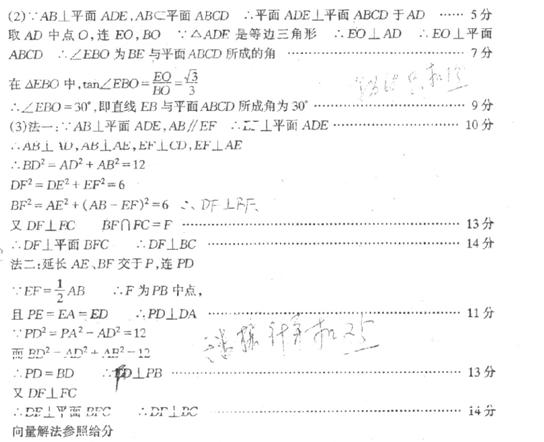 (2)∵AB⊥平面ADE,AB⊂平面ABCD ∴平面ADE⊥平面ABCD于AD ······ 5分
取AD中点O,连EO,BO ∵△ADE是等边三角形 ∴EO⊥AD ∴EO⊥平面
ABCD ∴∠EBO为BE与平面ABCD所成的角 ······ 7分
在ΔEBO中,tan∠EBO=EO/BO=√3/3
∴∠EBO=30°,即直线EB与平面ABCD所成角为30° ······ 9分
(3)法一:∵AB⊥平面ADE,AB∥EF ∴EF⊥平面ADE ······ 10分
∴AB⊥AD,AB⊥AE,EF⊥CD,EF⊥AE
∴BD²=AD²+AB²=12
DF²=DE²+EF²=6
BF²=AE²+(AB-EF)²=6 ∴DF⊥BF
又DF⊥FC BF∩FC=F ······ 13分
∴DF⊥平面BFC ∴DF⊥BC ······ 14分
法二:延长AE、BF交于P,连PD
∵EF=1/2AB ∴F为PB中点,
且PE=EA=ED ∴PD⊥DA ······ 11分
∵PD²=PA²-AD²=12
而BD²=AD²+AB²=12
∴PD=BD ∴FD⊥PB ······ 13分
又DF⊥FC
∴DF⊥平面BFC ∴DF⊥BC ······ 14分
向量解法参照给分